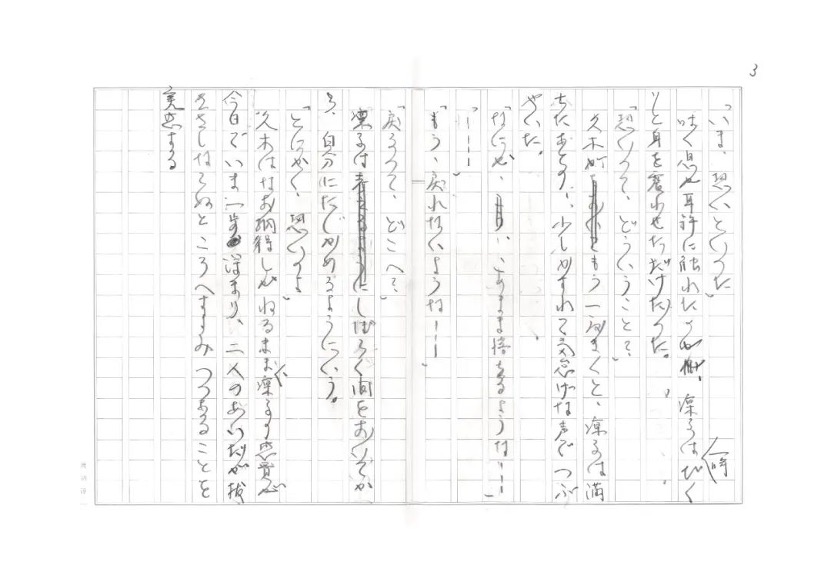 3
「いま、恐いといった」
吐く息が耳許に触れたのか、凜子はびく
一瞬
りと身を震わせただけだった。
「恐いって、どういうこと?」
久木が もう一度きくと、凜子は満
ちたあとの、少しかすれて気怠げな声でつぶ
やいた。
「なにか、このまま堕ちるような———」
「———」
「もう、戻れないような———」
「戻るって、どこへ?」
凜子は しばらく間をおいてか
ら、自分にたしかめるようにいう。
「とにかく、恐いのよ」
久木はなお納得しかねるまま凜子の
今日でいま一歩深まり、二人のあいだが抜
きさしならぬところへすすみつつあることを
実感する